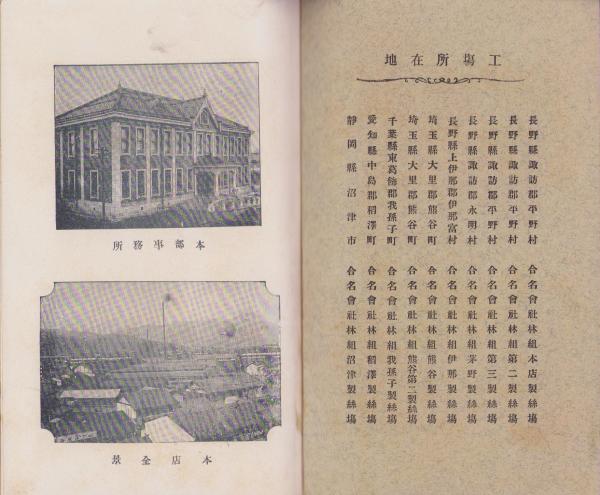 工塲所在地
長野縣諏訪郡平野村 合名會社林組本店製絲塲
長野縣諏訪郡平野村 合名會社林組第二製絲塲
長野縣諏訪郡平野村 合名會社林組第三製絲塲
長野縣諏訪郡永明村 合名會社林組茅野製絲塲
長野縣上伊那郡伊那富村 合名會社林組伊那製絲塲
埼玉縣大里郡熊谷町 合名會社林組熊谷製絲塲
埼玉縣大里郡熊谷町 合名會社林組熊谷第二製絲塲
千葉縣東葛飾郡我孫子町 合名會社林組我孫子製絲塲
愛知縣中島郡稻澤町 合名會社林組稻澤製絲塲
靜岡縣沼津市 合名會社林組沼津製絲塲
本部事務所
本店全景